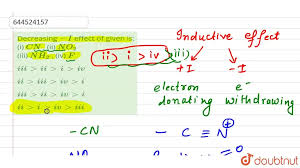 644524157
Decreasing − I effect of given is:
(i) CN (ii) NO₂
(iii) NH₂ (iv) F
iii > ii > i > iv
iii > ii > iv > i
iii > iv > ii > i
ii > i > iv > iii
ii > i > iv > iii)
Inductive effect
+I −I
electron e⁻
donating withdrawing
−CN − C ≡ N
⊕
=O
doubtnut